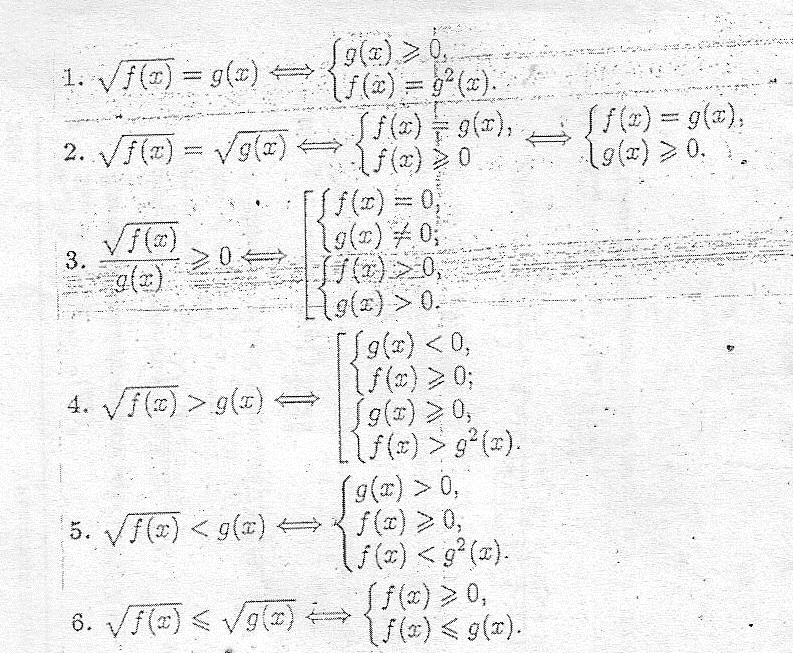 1. √f(x) = g(x) ⟺ { g(x) ⩾ 0, f(x) = g²(x).
2. √f(x) = √g(x) ⟺ { f(x) = g(x), f(x) ⩾ 0 ⟺ { f(x) = g(x), g(x) ⩾ 0.
3. √f(x) / g(x) ⩾ 0 ⟺ [ { f(x) = 0, g(x) ≠ 0; { f(x) > 0, g(x) > 0.
4. √f(x) > g(x) ⟺ [ { g(x) < 0, f(x) ⩾ 0; { g(x) ⩾ 0, f(x) > g²(x).
5. √f(x) < g(x) ⟺ { g(x) > 0, f(x) ⩾ 0, f(x) < g²(x).
6. √f(x) ⩽ √g(x) ⟺ { f(x) ⩾ 0, f(x) ⩽ g(x).